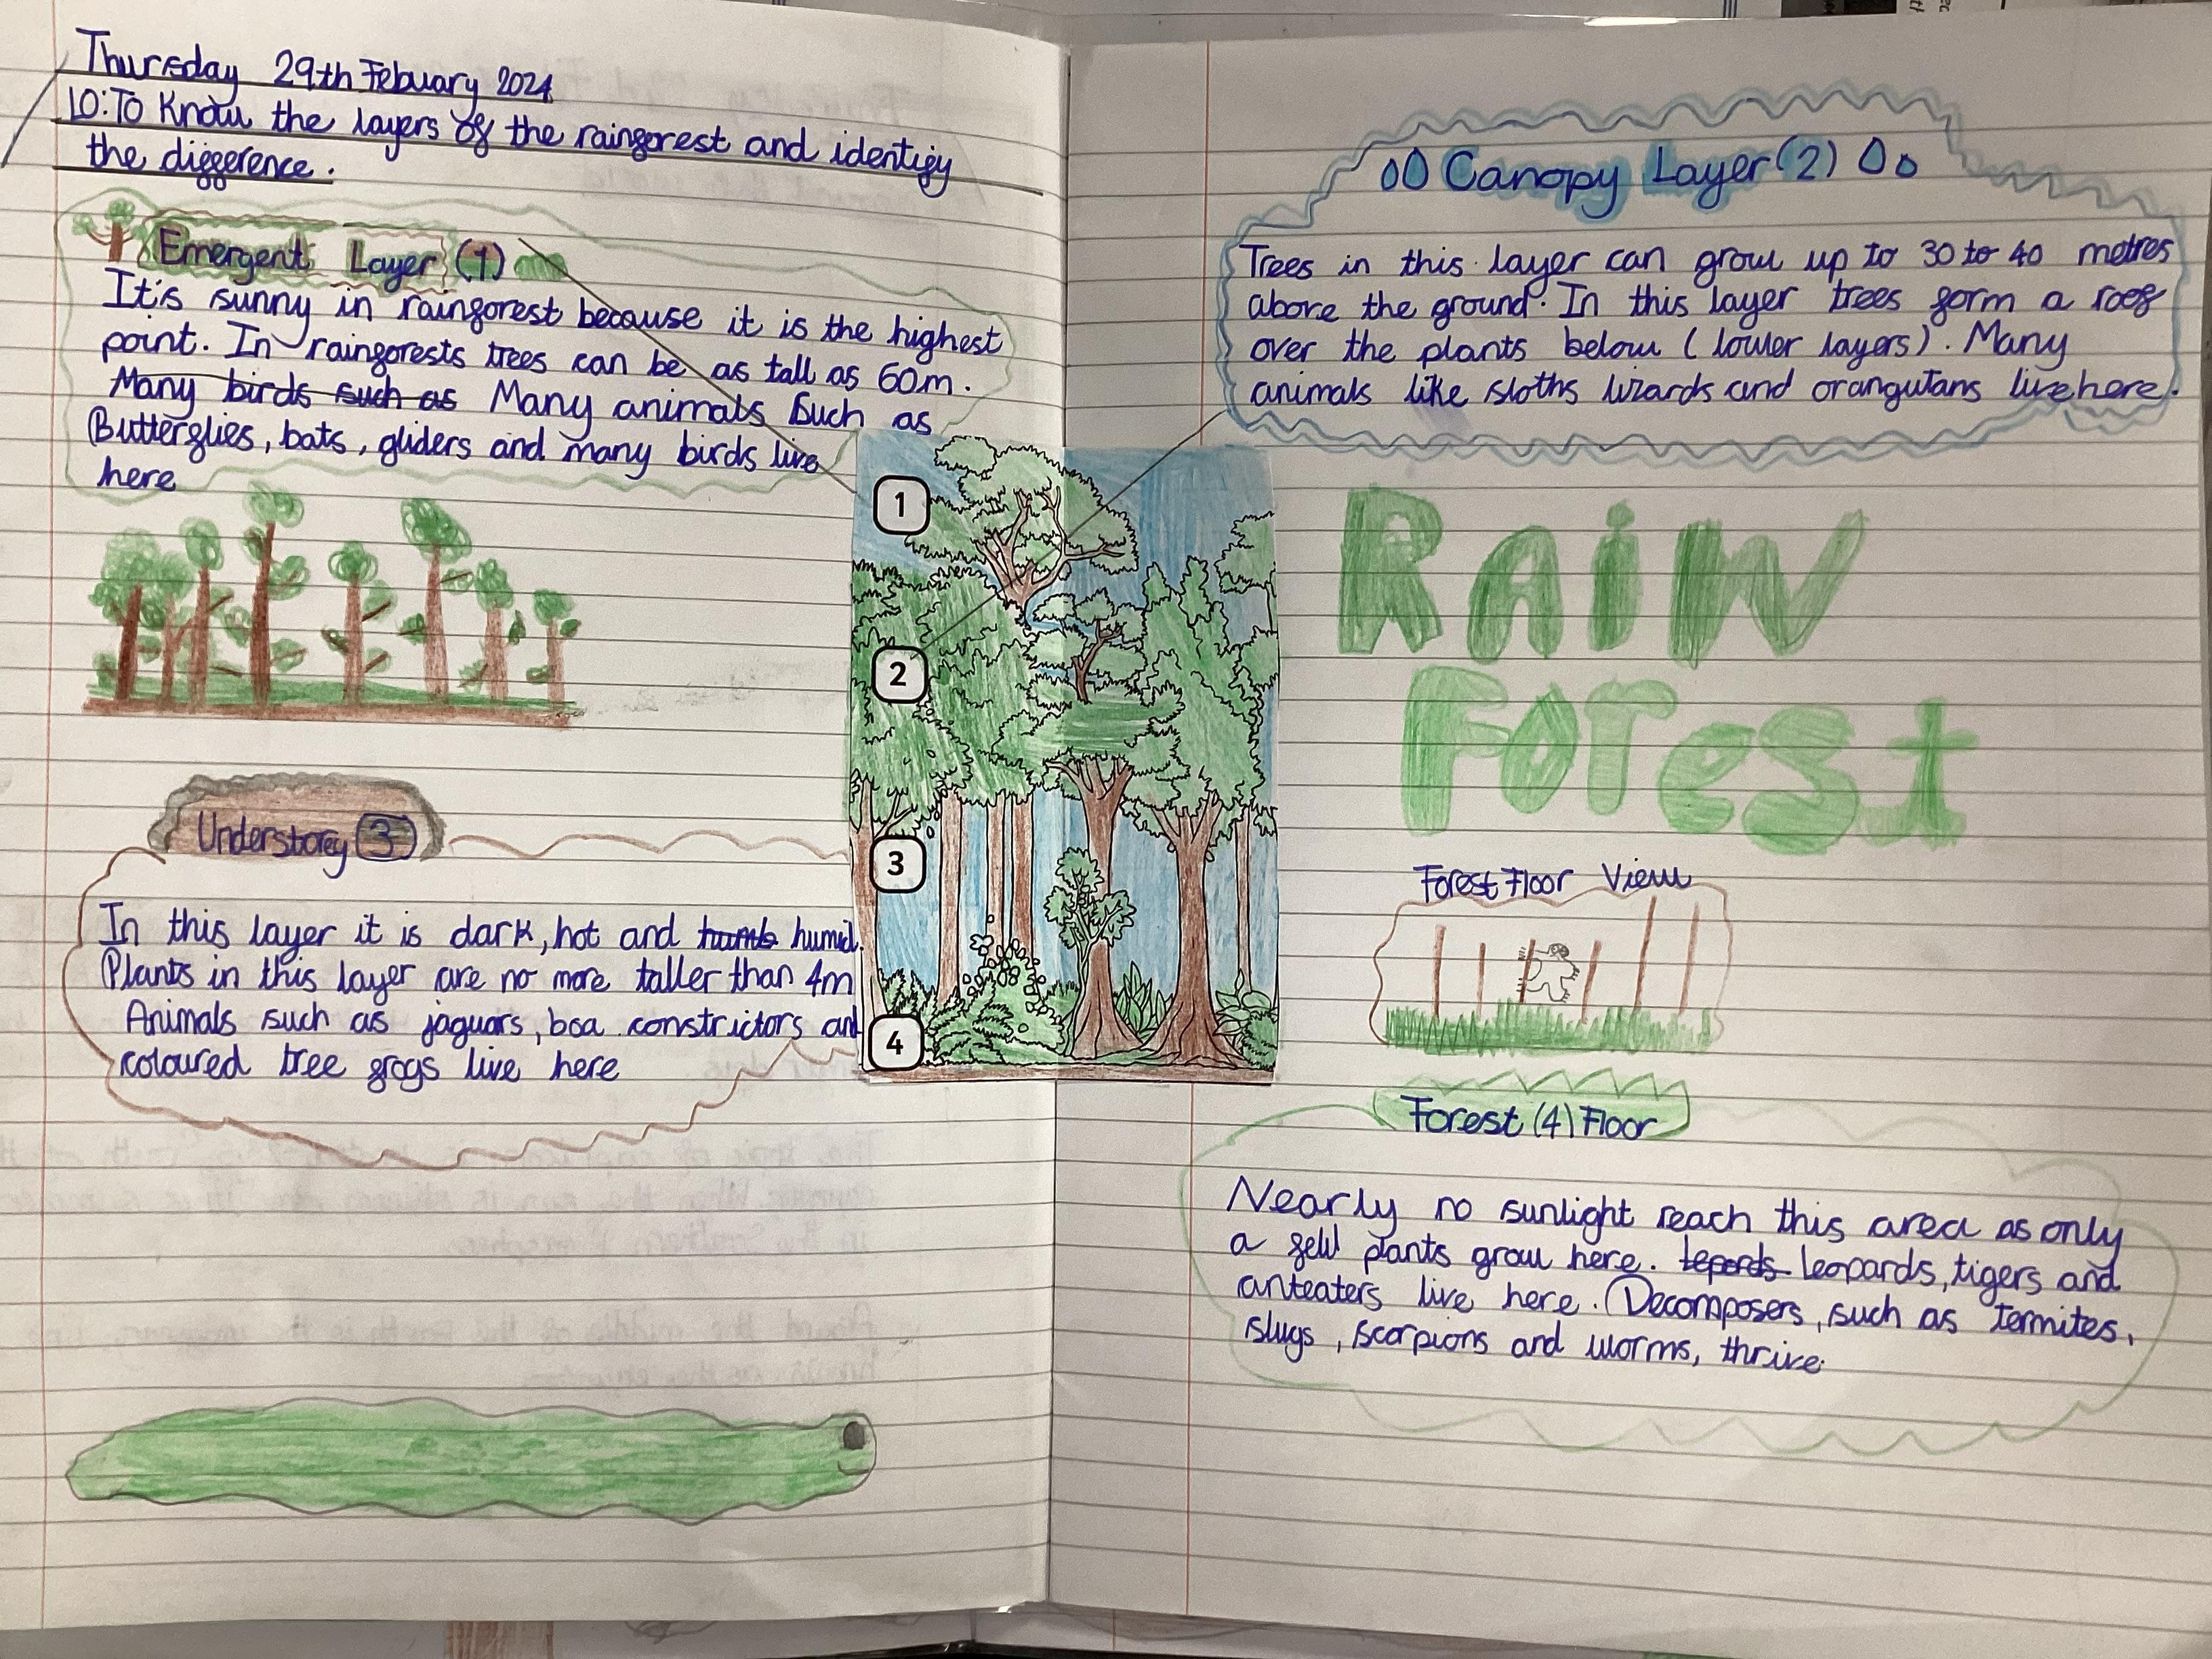 Thursday 29th Febuary 2024
LO: To Know the layers of the rainforest and identify
the difference.
Emergent Layer (1)
It's sunny in rainforest because it is the highest
point. In rainforests trees can be as tall as 60m.
Many birds such as Many animals such as
Butterflies, bats, gliders and many birds live
here
Understorey 3
In this layer it is dark, hot and humid.
Plants in this layer are no more taller than 4m
Animals such as jaguars, boa constrictors and
coloured tree frogs live here
1
2
3
4
Canopy Layer (2)
Trees in this layer can grow up to 30 to 40 metres
above the ground. In this layer trees form a roof
over the plants below (lower layers). Many
animals like sloths lizards and orangutans live here.
RAiN
ForesT
Forest Floor View
Forest (4) Floor
Nearly no sunlight reach this area as only
a few plants grow here. leopards, tigers and
anteaters live here. Decomposers, such as termites,
slugs, scorpions and worms, thrive.